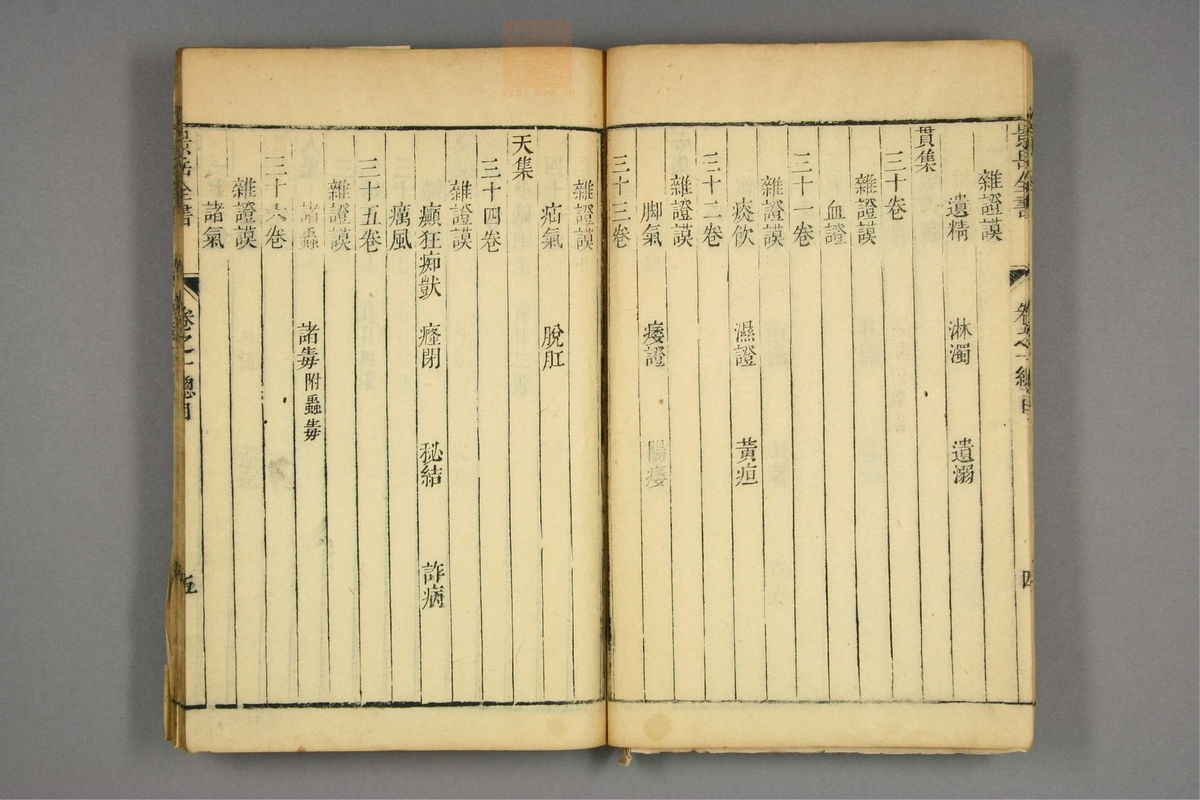 景岳全書 卷之一總目 四
雜證謨
遺精 淋濁 遺溺
貫集
三十卷
雜證謨
血證
三十一卷
雜證謨
痰飲 濕證 黃疸
三十二卷
雜證謨
脚氣 痿證 陽痿
三十三卷
雜證謨
疝氣 脫肛
天集
三十四卷
雜證謨
癲狂痴獃 癃閉 秘結 詐病
癘風
三十五卷
雜證謨
諸蟲 諸毒附蠱毒
三十六卷
雜證謨
諸氣
景岳全書 卷之一總目 五